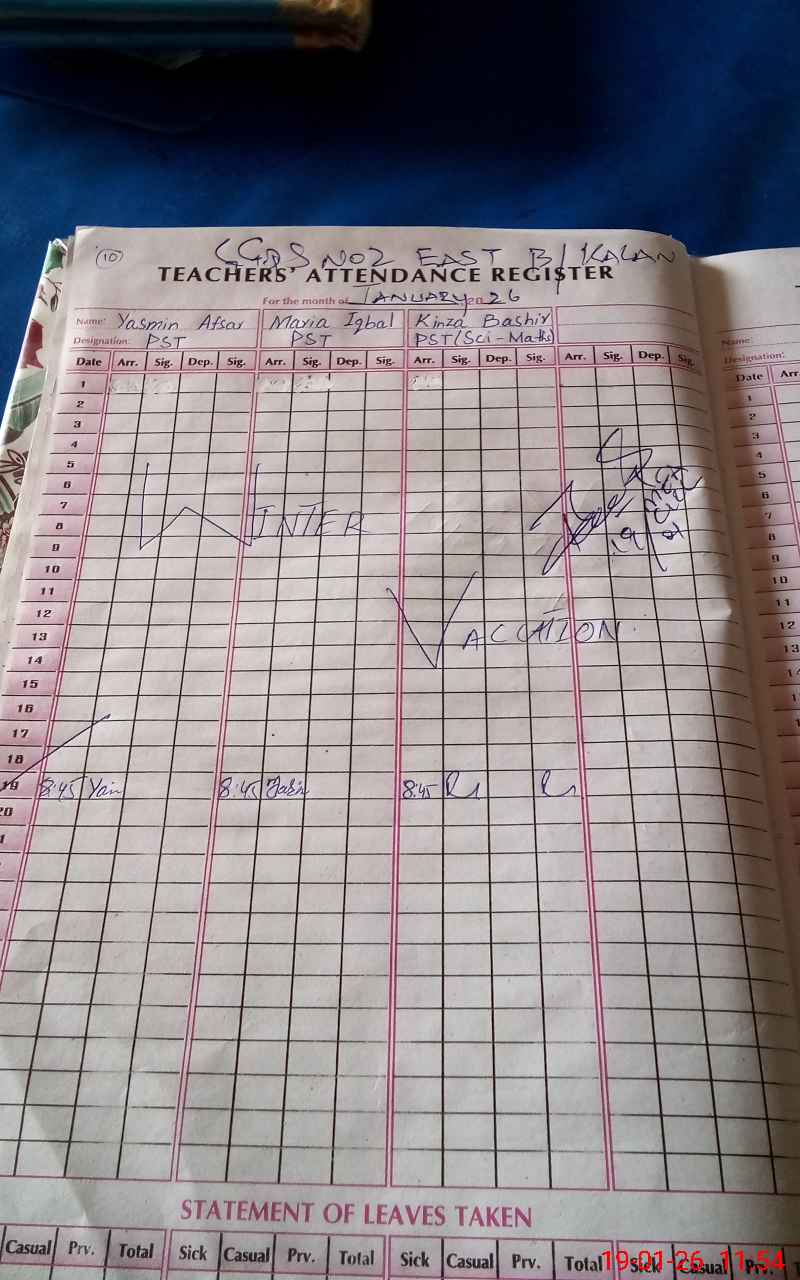 10
GGPS NO2 EAST B/KALAN
TEACHERS' ATTENDANCE REGISTER
For the month of JANUARY 20 26
Name: Yasmin Afsar Maria Iqbal Kinza Bashir
Designation: PST PST PST(Sci-Maths)
Date Arr. Sig. Dep. Sig. Arr. Sig. Dep. Sig. Arr. Sig. Dep. Sig. Arr. Sig. Dep. Sig.
1
2
3
4
5
6
7
8
9
10
11
12
13
14
15
16
17
18
19 8:45 8:45 8:45
20
WINTER
VACCATION.
STATEMENT OF LEAVES TAKEN
Casual Prv. Total Sick Casual Prv. Total Sick Casual Prv. Total Sick Casual Prv.
Name:
Designation:
Date Arr.
1
2
3
4
5
6
7
8
9
10
11
12
13
19-01-26 11:54